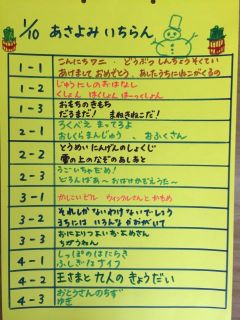 1/10 あさよみ いちらん
1-1 こんにちワニ・どうぶつ しんちょうそくてい
あけまして おめでとう、あしたうちにねこがくるの
1-2 じゅうにしのおはなし
くしょん はくしょん はーっくしょん
1-3 おもちのきもち
だるまだ! まねきねこだ!
2-1 ろくべえ まってろよ
おしくらまんじゅう 、おふくさん
2-2 とうめいにんげんのしょくじ
雪の上のなぞのあしあと
2-3 うごいちゃだめ!
どろんばあ〜おばけかぞえうた〜
3-1 かしこいビル ウィックルさんとかもめ
3-2 それしか ないわけ ないでしょう
3-3 おによりつよいおよめさん
4-1 しっぽのはたらき
ふしぎなナイフ
4-2 王さまと九人のきょうだい
4-3 おとうさんのちず
ゆき